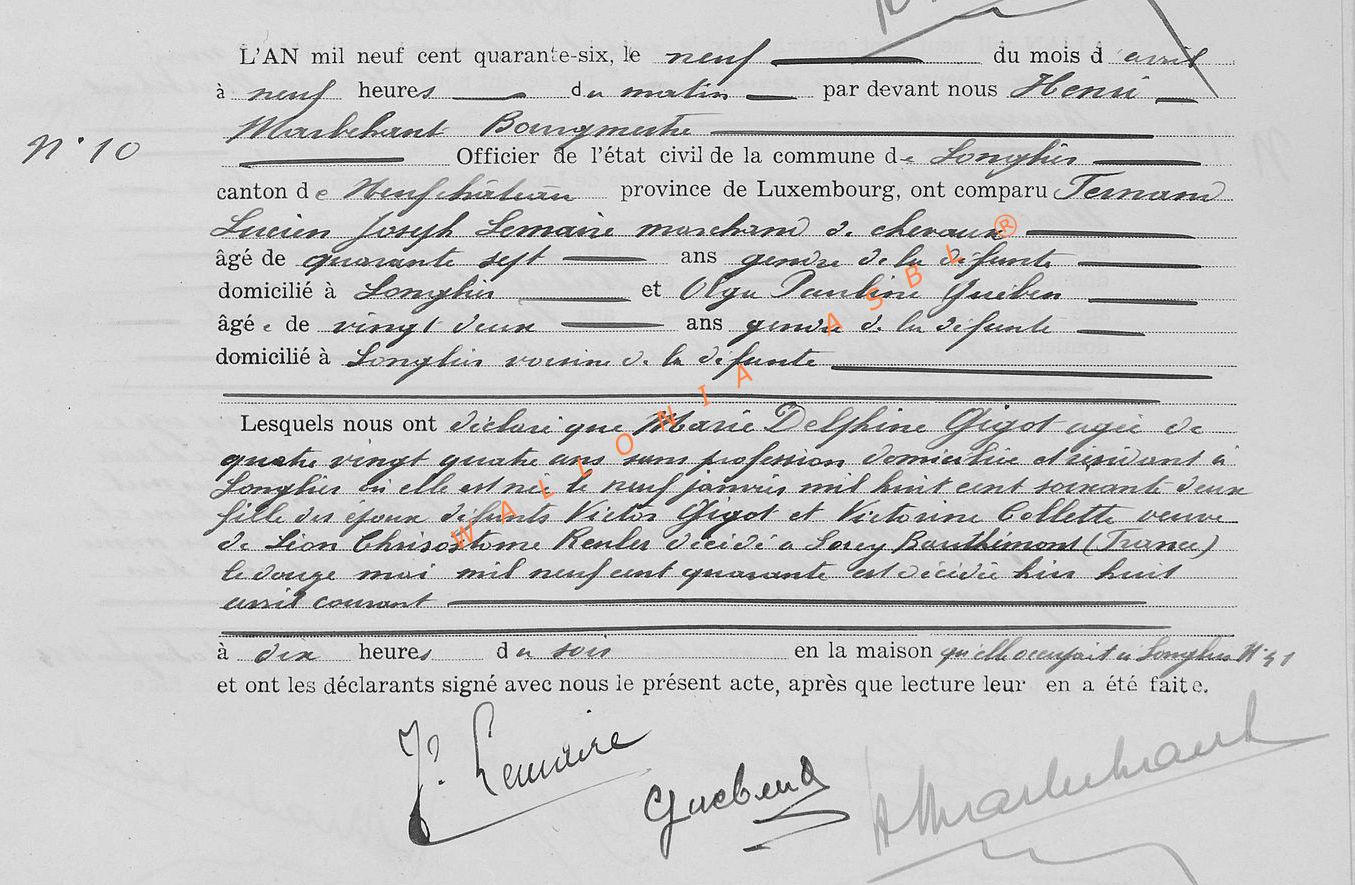 L'AN mil neuf cent quarante-six, le neuf du mois d avril
à neuf heures du matin par devant nous Henri
Marbehant Bourgmestre
N° 10
Officier de l'état civil de la commune de Longlier
canton de Neufchâteau province de Luxembourg, ont comparu Fernand
Lucien Joseph Lemaire marchand de chevaux
âgé de quarante sept ans gendre de la défunte
domicilié à Longlier et Olga Pauline Guében
âgée de vingt deux ans gendre de la défunte
domicilié à Longlier voisine de la défunte
Lesquels nous ont déclaré que Marie Delphine Gigot agée de
quatre vingt quatre ans sans profession domiciliée et résidant à
Longlier où elle est née le neuf janvier mil huit cent soixante deux
fille des époux défunts Victor Gigot et Victorine Collette veuve
de Léon Chrisostome Renler décédé à Sorcy Bauthémont (France)
le douze mai mil neuf cent quarante est décédée hier huit
avril courant
à dix heures du soir en la maison qu'elle occupait à Longlier N° 51
et ont les déclarants signé avec nous le présent acte, après que lecture leur en a été faite.
F. Lemaire
Gueben O
H Marbehant
WALLONIA ASBL ®